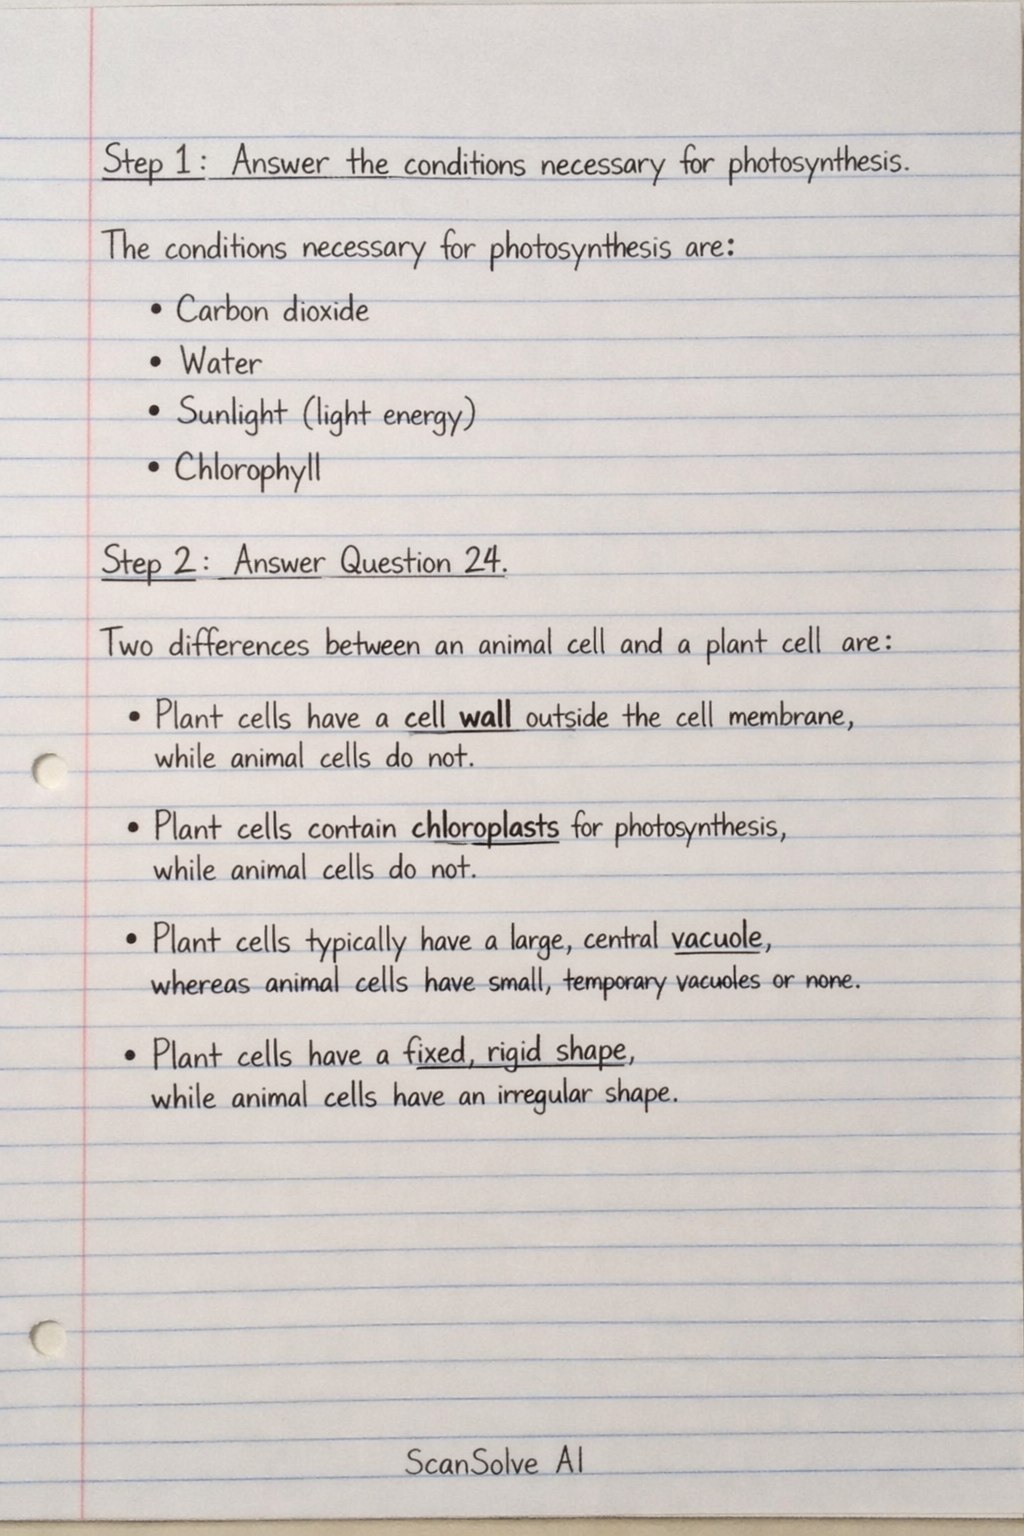 Step 1: Answer the conditions necessary for photosynthesis.
The conditions necessary for photosynthesis are:
• Carbon dioxide
• Water
• Sunlight (light energy)
• Chlorophyll
Step 2: Answer Question 24.
Two differences between an animal cell and a plant cell are:
• Plant cells have a cell wall outside the cell membrane,
while animal cells do not.
• Plant cells contain chloroplasts for photosynthesis,
while animal cells do not.
• Plant cells typically have a large, central vacuole,
whereas animal cells have small, temporary vacuoles or none.
• Plant cells have a fixed, rigid shape,
while animal cells have an irregular shape.
ScanSolve AI